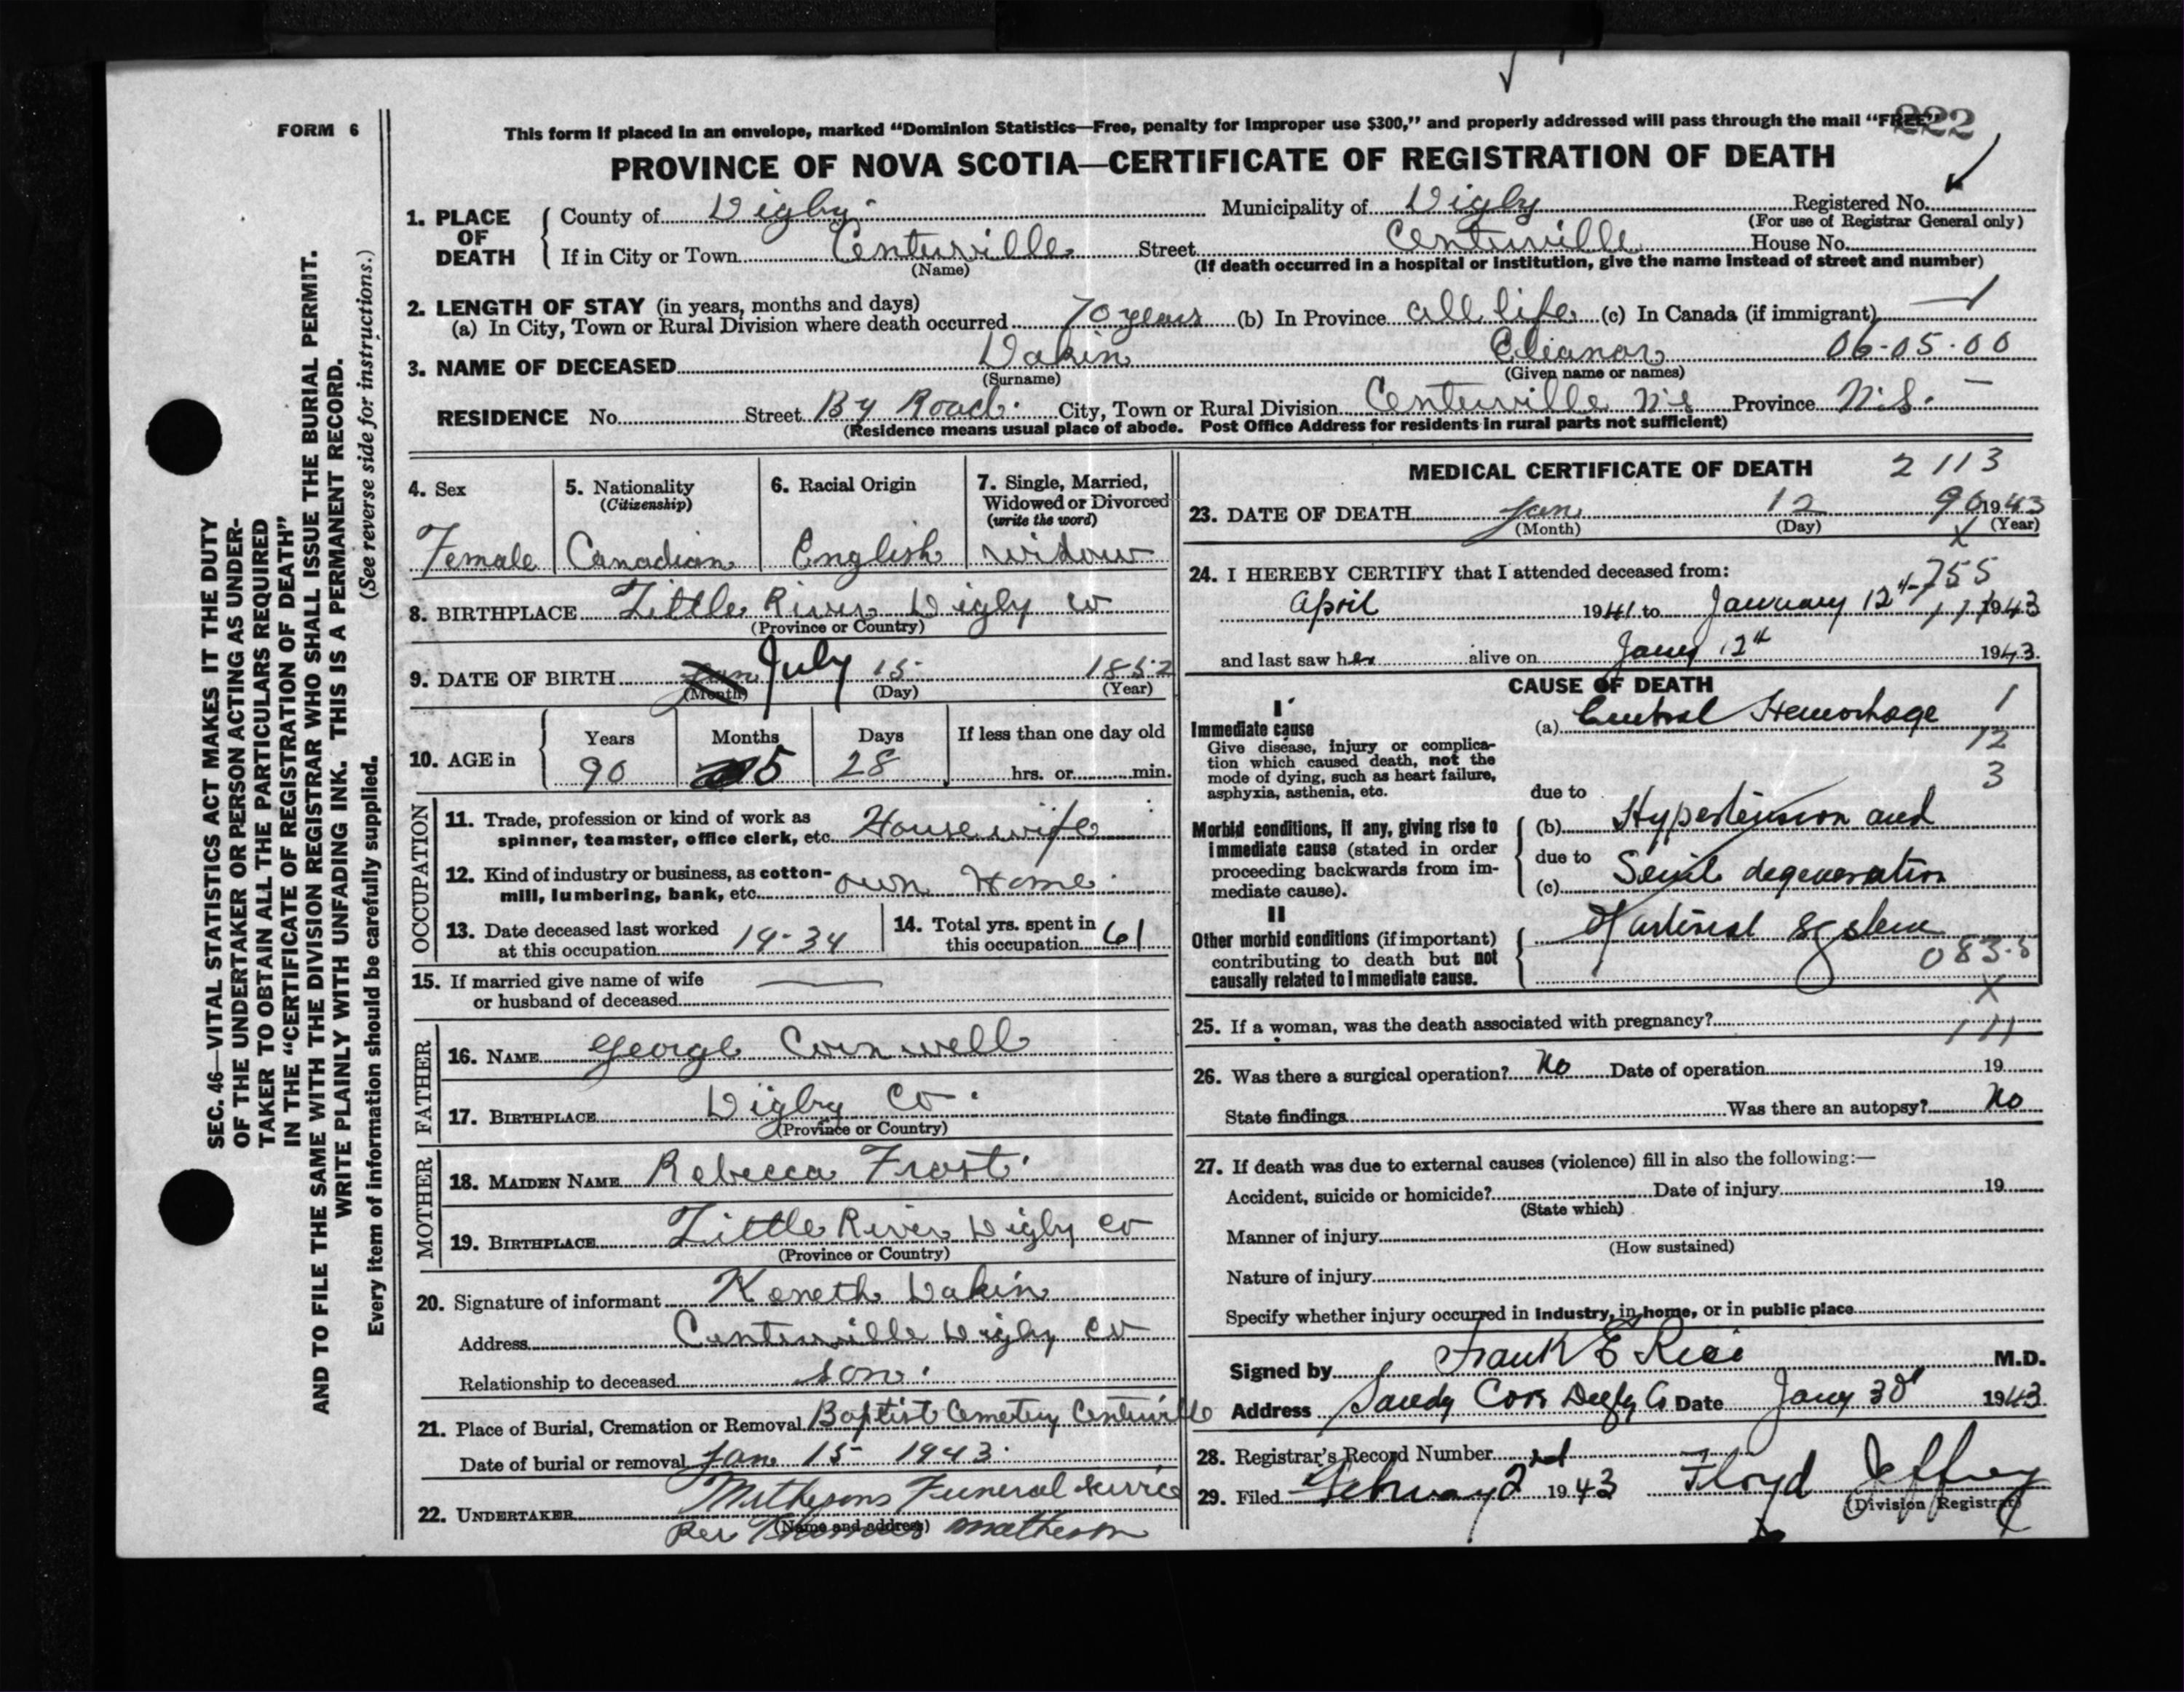 FORM 6
This form if placed in an envelope, marked “Dominion Statistics—Free, penalty for improper use $300,” and properly addressed will pass through the mail “FREE”
222
PROVINCE OF NOVA SCOTIA—CERTIFICATE OF REGISTRATION OF DEATH
1. PLACE OF DEATH
County of Digby Municipality of Digby Registered No.
(For use of Registrar General only)
If in City or Town Centerville Street Centerville House No.
(Name) (If death occurred in a hospital or institution, give the name instead of street and number)
2. LENGTH OF STAY (in years, months and days)
(a) In City, Town or Rural Division where death occurred 70 years (b) In Province all life (c) In Canada (if immigrant) —
3. NAME OF DECEASED Dakin Elianor 06-05-00
(Surname) (Given name or names)
RESIDENCE No. Street By Road City, Town or Rural Division Centerville N.S Province N.S. —
(Residence means usual place of abode. Post Office Address for residents in rural parts not sufficient)
4. Sex 5. Nationality 6. Racial Origin 7. Single, Married,
(Citizenship) Widowed or Divorced
(write the word)
Female Canadian English widow
8. BIRTHPLACE Little River Digby Co
(Province or Country)
9. DATE OF BIRTH July 15 1852
(Month) (Day) (Year)
10. AGE in Years Months Days If less than one day old
90 5 28 hrs. or min.
OCCUPATION
11. Trade, profession or kind of work as
spinner, teamster, office clerk, etc. House wife
12. Kind of industry or business, as cotton-
mill, lumbering, bank, etc. own Home
13. Date deceased last worked
at this occupation 19-34
14. Total yrs. spent in
this occupation 61
15. If married give name of wife
or husband of deceased —
FATHER
16. NAME George Cornwell
17. BIRTHPLACE Digby Co.
(Province or Country)
MOTHER
18. MAIDEN NAME Rebecca Frost
19. BIRTHPLACE Little River Digby Co
(Province or Country)
20. Signature of informant Keneth Dakin
Address Centerville Digby Co
Relationship to deceased son
21. Place of Burial, Cremation or Removal Baptist Cemetery Centerville
Date of burial or removal Jan 15 1943
22. UNDERTAKER Mathesons Funeral Service
(Name and address)
Per Thomas Matheson
MEDICAL CERTIFICATE OF DEATH 2113
23. DATE OF DEATH Jan 12 90 1943
(Month) (Day) (Year)
X
24. I HEREBY CERTIFY that I attended deceased from:
755
April 1941 to January 12th 1943
and last saw her alive on Jany 12th 1943
CAUSE OF DEATH
I
Immediate cause
Give disease, injury or complica-
tion which caused death, not the
mode of dying, such as heart failure,
asphyxia, asthenia, etc.
(a) Cerebral Hemorhage 1
12
3
due to
Morbid conditions, if any, giving rise to
immediate cause (stated in order
proceeding backwards from im-
mediate cause).
(b) Hypertension and
due to
(c) Senile degeneration
II
Other morbid conditions (if important)
contributing to death but not
causally related to immediate cause.
of arterial system
083.5
X
25. If a woman, was the death associated with pregnancy?
111
26. Was there a surgical operation? No Date of operation 19
State findings Was there an autopsy? No
27. If death was due to external causes (violence) fill in also the following:—
Accident, suicide or homicide? Date of injury 19
(State which)
Manner of injury
(How sustained)
Nature of injury
Specify whether injury occurred in industry, in home, or in public place
Signed by Frank E Rice M.D.
Address Sandy Cove Digby Co Date Jany 30 1943
28. Registrar's Record Number
29. Filed February 2nd 1943 Floyd Jeffrey
(Division Registrar)
SEC. 46—VITAL STATISTICS ACT MAKES IT THE DUTY
OF THE UNDERTAKER OR PERSON ACTING AS UNDER-
TAKER TO OBTAIN ALL THE PARTICULARS REQUIRED
IN THE “CERTIFICATE OF REGISTRATION OF DEATH”
AND TO FILE THE SAME WITH THE DIVISION REGISTRAR WHO SHALL ISSUE THE BURIAL PERMIT.
WRITE PLAINLY WITH UNFADING INK. THIS IS A PERMANENT RECORD.
(See reverse side for instructions.)
Every item of information should be carefully supplied.